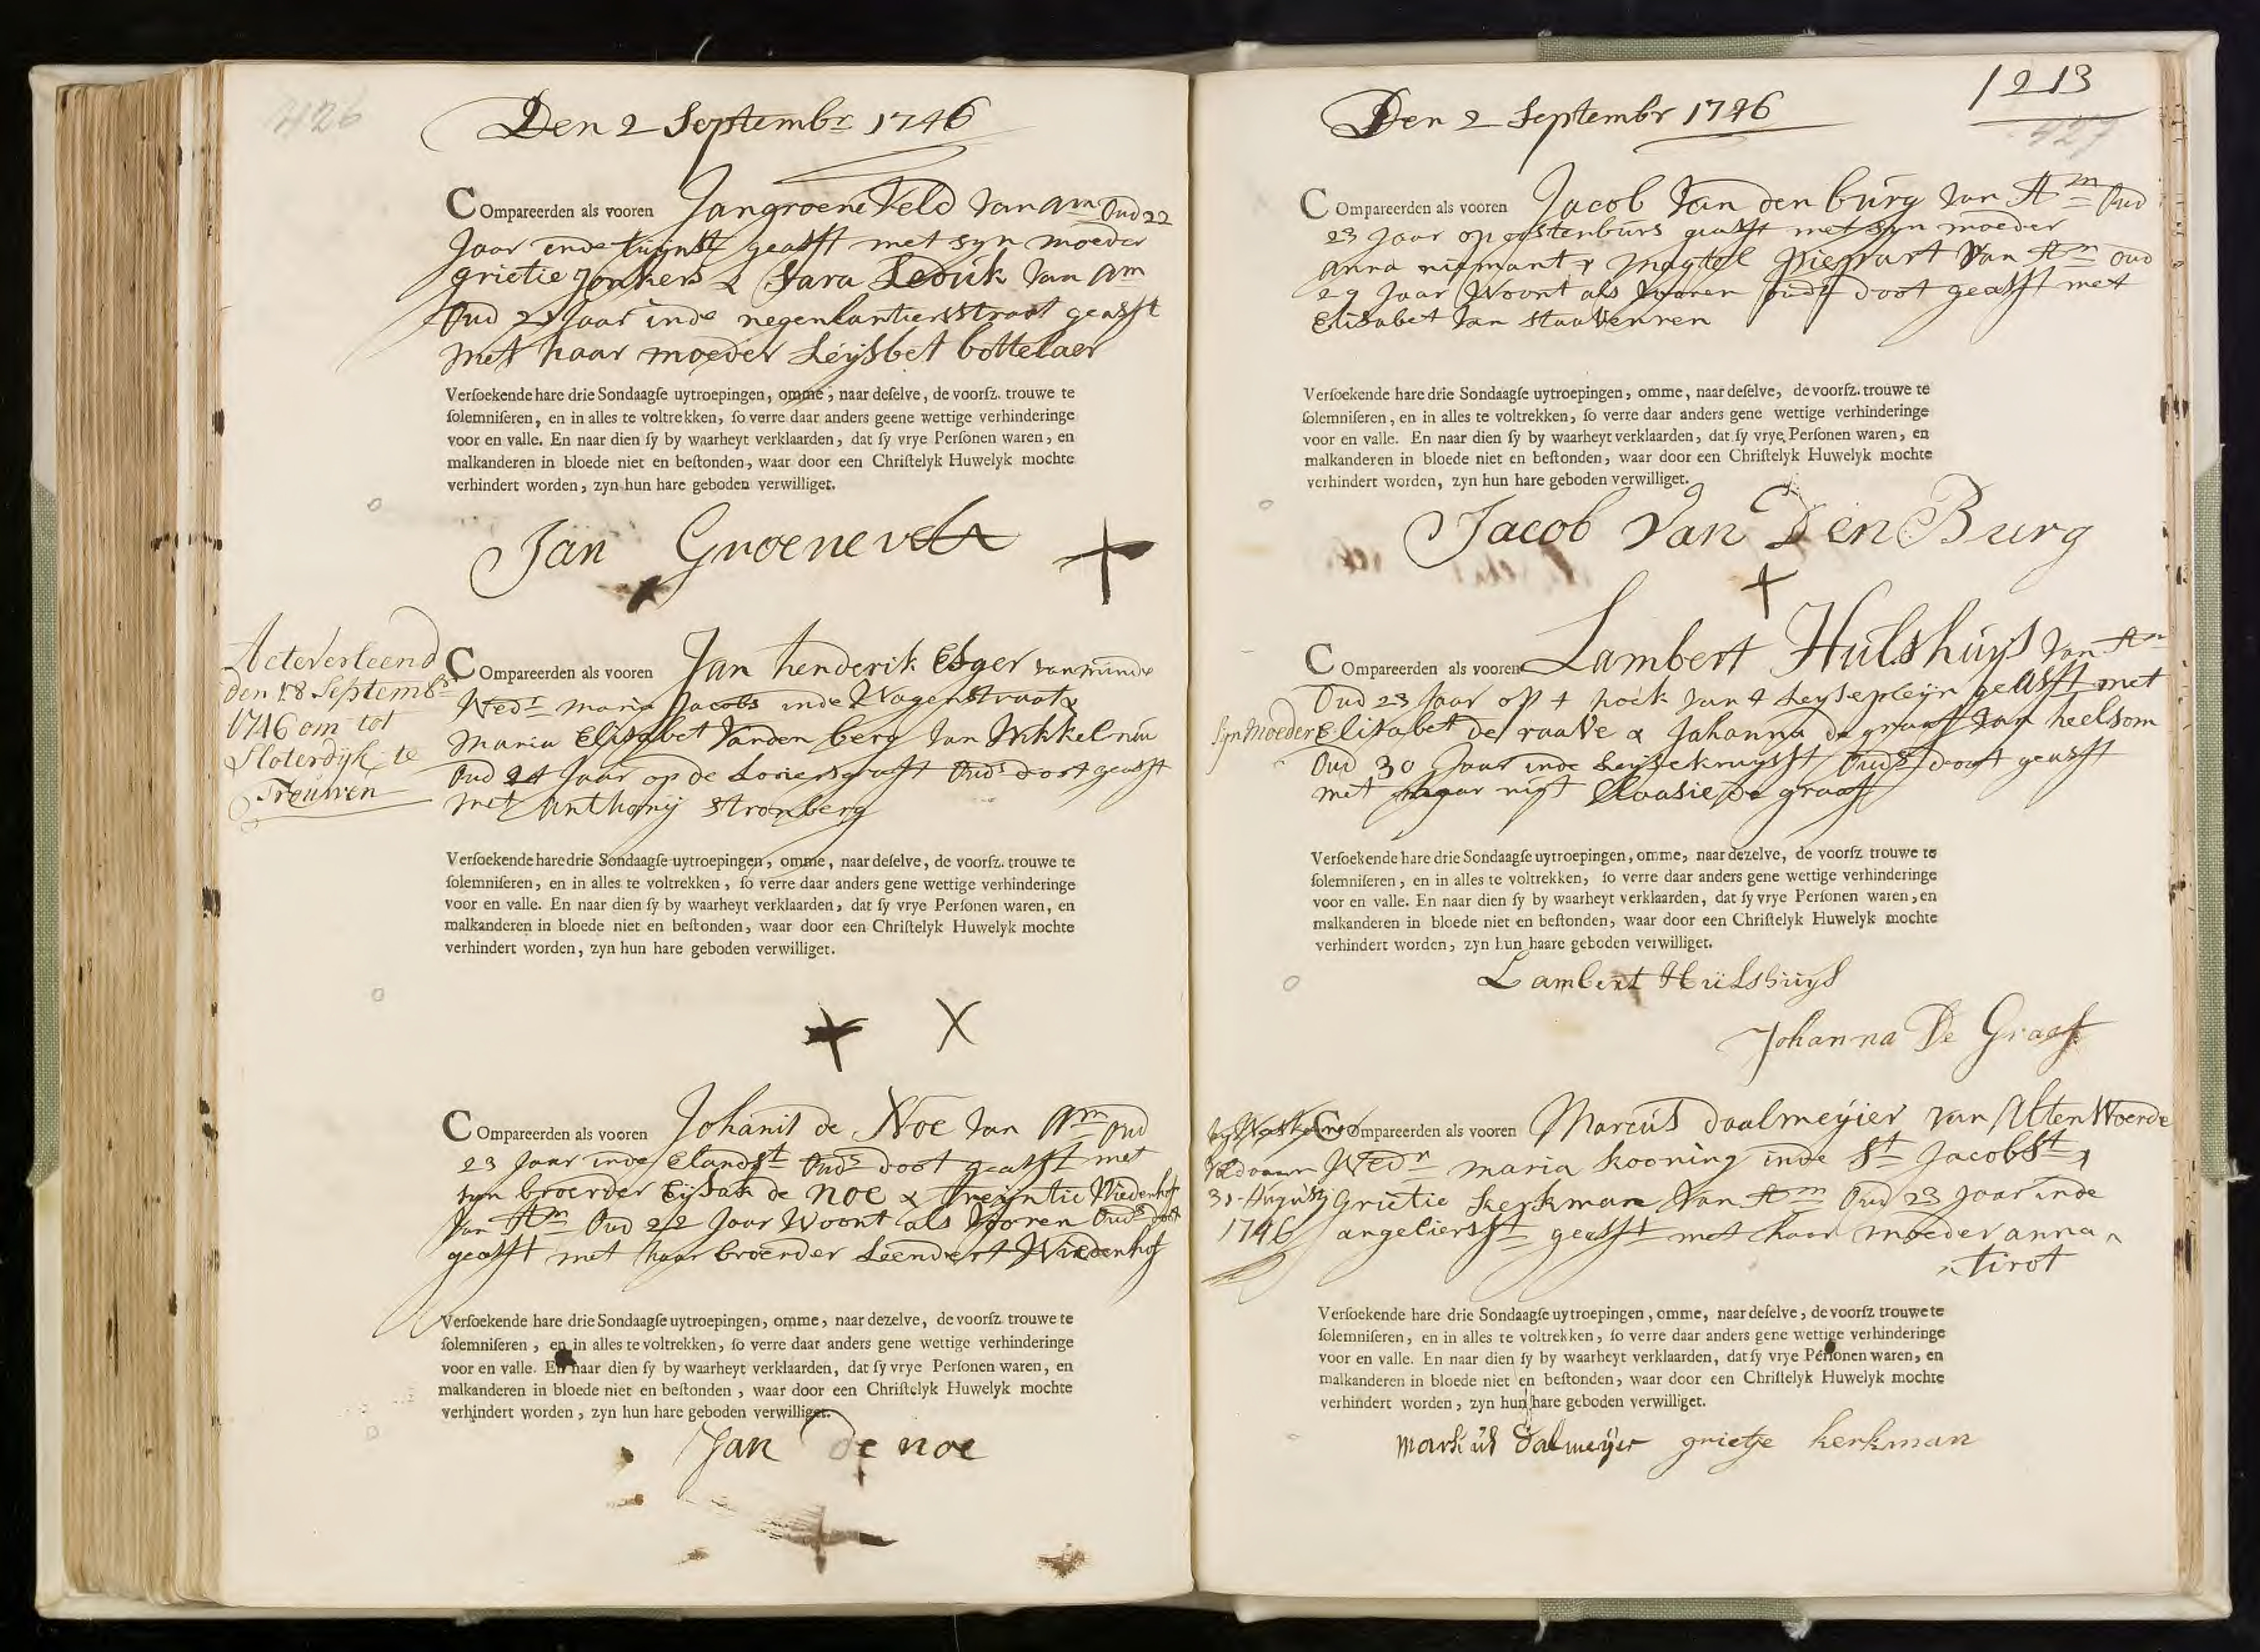 426
Den 2 Septembr 1746
Compareerden als vooren Jan groene Veld van Am Oud 22
Jaar inde tuynst geasst met syn moeder
grietie Jonkers & Sara Leduk van Am
Oud 21 Jaar inde negenlantiersstraat geasst
met haar moeder Leysbet bottelaer
Verſoekende hare drie Sondaagſe uytroepingen, omme, naar deſelve, de voorſz. trouwe te
ſolemniſeren, en in alles te voltrekken, ſo verre daar anders geene wettige verhinderinge
voor en valle. En naar dien ſy by waarheyt verklaarden, dat ſy vrye Perſonen waren, en
malkanderen in bloede niet en beſtonden, waar door een Chriſtelyk Huwelyk mochte
verhindert worden, zyn hun hare geboden verwilliget.
Jan Groenevelt
Acte Verleend
den 18 Septembr
1746 om tot
Sloterdyk te
Trouwen
Compareerden als vooren Jan henderik Esger van minde
Wedr maria Jacobs inde Wagenstraat &
Maria Elisabet Vanden berg van
Oud 24 Jaar op de Loriersgraft Ouds doot geasst
met Anthony stronberg
Verſoekende hare drie Sondaagſe uytroepingen, omme, naar deſelve, de voorſz. trouwe te
ſolemniſeren, en in alles te voltrekken, ſo verre daar anders gene wettige verhinderinge
voor en valle. En naar dien ſy by waarheyt verklaarden, dat ſy vrye Perſonen waren, en
malkanderen in bloede niet en beſtonden, waar door een Chriſtelyk Huwelyk mochte
verhindert worden, zyn hun hare geboden verwilliget.
Compareerden als vooren Johanis de Noe van Am Oud
23 Jaar inde Elandst Ouds doot geasst met
syn broerder Eysak de noe & treyntie Wiedenhof
van Am Oud 22 Jaar Woont als Vooren Ouds doot
geasst met haar broerder Leendert Wiedenhof
Verſoekende hare drie Sondaagſe uytroepingen, omme, naar dezelve, de voorſz. trouwe te
ſolemniſeren, en in alles te voltrekken, ſo verre daar anders gene wettige verhinderinge
voor en valle. En naar dien ſy by waarheyt verklaarden, dat ſy vrye Perſonen waren, en
malkanderen in bloede niet en beſtonden, waar door een Chriſtelyk Huwelyk mochte
verhindert worden, zyn hun hare geboden verwilliget.
Jan De noe
1213
427
Den 2 Septembr 1746
Compareerden als vooren Jacob Van den burg van Am Oud
23 Jaar op oostenburg geasst met syn moeder
anna niemant & magtel piepart Van Am oud
29 Jaar Woont als Vooren ouds doot geasst met
Elisabet Van staavenren
Verſoekende hare drie Sondaagſe uytroepingen, omme, naar deſelve, de voorſz. trouwe te
ſolemniſeren, en in alles te voltrekken, ſo verre daar anders gene wettige verhinderinge
voor en valle. En naar dien ſy by waarheyt verklaarden, dat ſy vrye Perſonen waren, en
malkanderen in bloede niet en beſtonden, waar door een Chriſtelyk Huwelyk mochte
verhindert worden, zyn hun hare geboden verwilliget.
Jacob Van Den Burg
Compareerden als vooren Lambert Hulshuys van Am
Oud 23 Jaar op t hoek van t Leysepleyn geasst met
syn Moeder Elisabet de raave & Johanna de graaf van heelsom
Oud 30 Jaar inde Leysekruysst Ouds doot geasst
met haar nigt Claasie de graaf
Verſoekende hare drie Sondaagſe uytroepingen, omme, naar dezelve, de voorſz trouwe te
ſolemniſeren, en in alles te voltrekken, ſo verre daar anders gene wettige verhinderinge
voor en valle. En naar dien ſy by waarheyt verklaarden, dat ſy vrye Perſonen waren, en
malkanderen in bloede niet en beſtonden, waar door een Chriſtelyk Huwelyk mochte
verhindert worden, zyn hun haare geboden verwilliget.
Lambert Hulshuys
Johanna De Graaf
voldaan
31 Augusty
1746
Compareerden als vooren Marcus daalmeyier van Uten Woerde
Wedr maria kooning inde St Jacobst &
Grietie kerkman van Am Oud 23 Jaar inde
angeliersst geasst met haar moeder anna
tirot
Verſoekende hare drie Sondaagſe uytroepingen, omme, naar deſelve, de voorſz trouwe te
ſolemniſeren, en in alles te voltrekken, ſo verre daar anders gene wettige verhinderinge
voor en valle. En naar dien ſy by waarheyt verklaarden, dat ſy vrye Perſonen waren, en
malkanderen in bloede niet en beſtonden, waar door een Chriſtelyk Huwelyk mochte
verhindert worden, zyn hun hare geboden verwilliget.
Markus Dalmeyer grietje kerkman